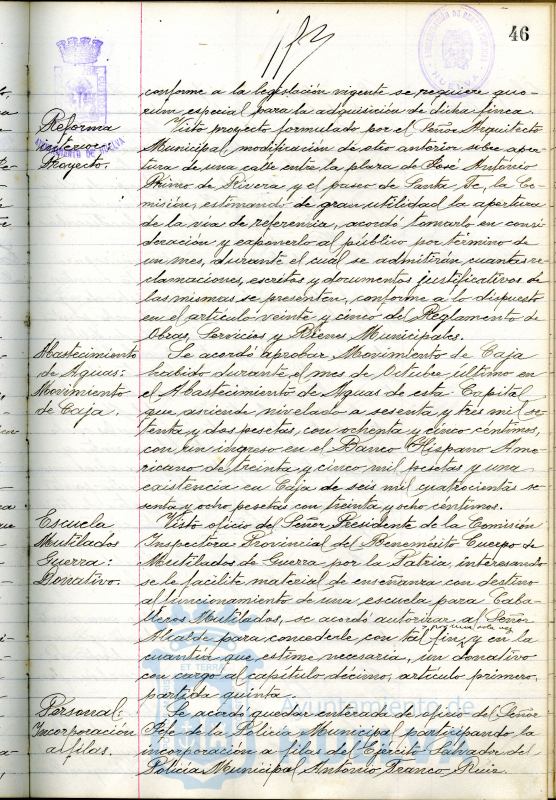 46
conforme a la legislación vigente se requiere quo-
rum especial para la adquisición de dicha finca.
Reforma
interior:
Proyecto.
AYUNTAMIENTO DE HUELVA
Visto proyecto formulado por el Señor Arquitecto
Municipal modificación de otro anterior sobre aper-
tura de una calle entre la plaza de José Antonio
Primo de Rivera y el paseo de Santa Fe, la Co-
misión, estimando de gran utilidad la apertura
de la vía de referencia, acordó tomarlo en consi-
deración y exponerlo al público por término de
un mes, durante el cual se admitirán cuantas re-
clamaciones, escritos y documentos justificativos de
las mismas se presenten, conforme a lo dispuesto
en el artículo veinte y cinco del Reglamento de
Obras, Servicios y Bienes Municipales.
Abastecimiento
de Aguas:
Movimiento
de Caja.
Se acordó aprobar Movimiento de Caja
habido durante el mes de Octubre último en
el Abastecimiento de Aguas de esta Capital
que asciende nivelado a sesenta y tres mil se-
tenta y dos pesetas, con ochenta y cinco céntimos,
con un ingreso en el Banco Hispano Ame-
ricano de treinta y cinco mil pesetas y una
existencia en Caja de seis mil cuatrocientas se-
senta y ocho pesetas con treinta y ocho céntimos.
Escuela
Mutilados
Guerra:
Donativo.
Visto oficio del Señor Presidente de la Comisión
Inspectora Provincial del Benemérito Cuerpo de
Mutilados de Guerra por la Patria interesando
se le facilite material de enseñanza con destino
al funcionamiento de una escuela para Caba-
lleros Mutilados, se acordó autorizar al Señor
y por una sola vez
Alcalde para concederle con tal fin, y en la
cuantía que estime necesaria, un donativo
con cargo al capítulo décimo, artículo primero,
partida quinta.
Personal:
Incorporación
a filas.
Se acordó quedar enterada de oficio del Señor
Jefe de la Policía Municipal participando la
incorporación a filas del Ejército Salvador del
Policía Municipal Antonio Franco Ruiz.
ET TERRA
Ayuntamiento de
HUELVA